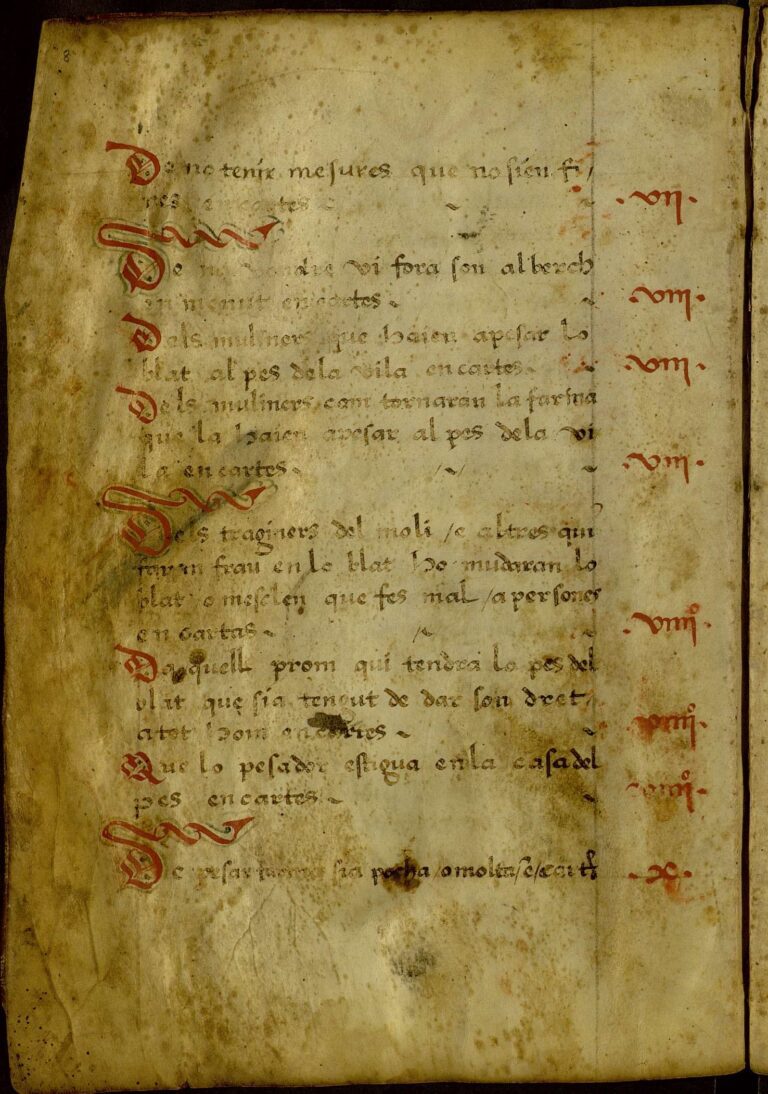 De no tenir mesures que no sien fi/
nes en cartes · vii ·
De no vendre vi fora son alberch
en menut en cartes · viii ·
Dels muliners que haien apesar lo
blat al pes dela vila en cartes · viii ·
Dels muliners com tornaran la farina
que la haien apesar al pes dela vi
la en cartes · viii ·
Dels traginers del moli /e altres qui
faran frau en lo blat ho mudaran lo
blat /o mesclen que fes mal /a persones
en cartas · viiiiº ·
Daquell prom qui tendra lo pes del
blat que sia tengut de dar son dret
atot hom en cartes · viiiiº ·
Que lo pesador estigua en la casa del
pes en cartes · viiiiº ·
De pesar farina sia pocha /o molta /e/ cart · x ·